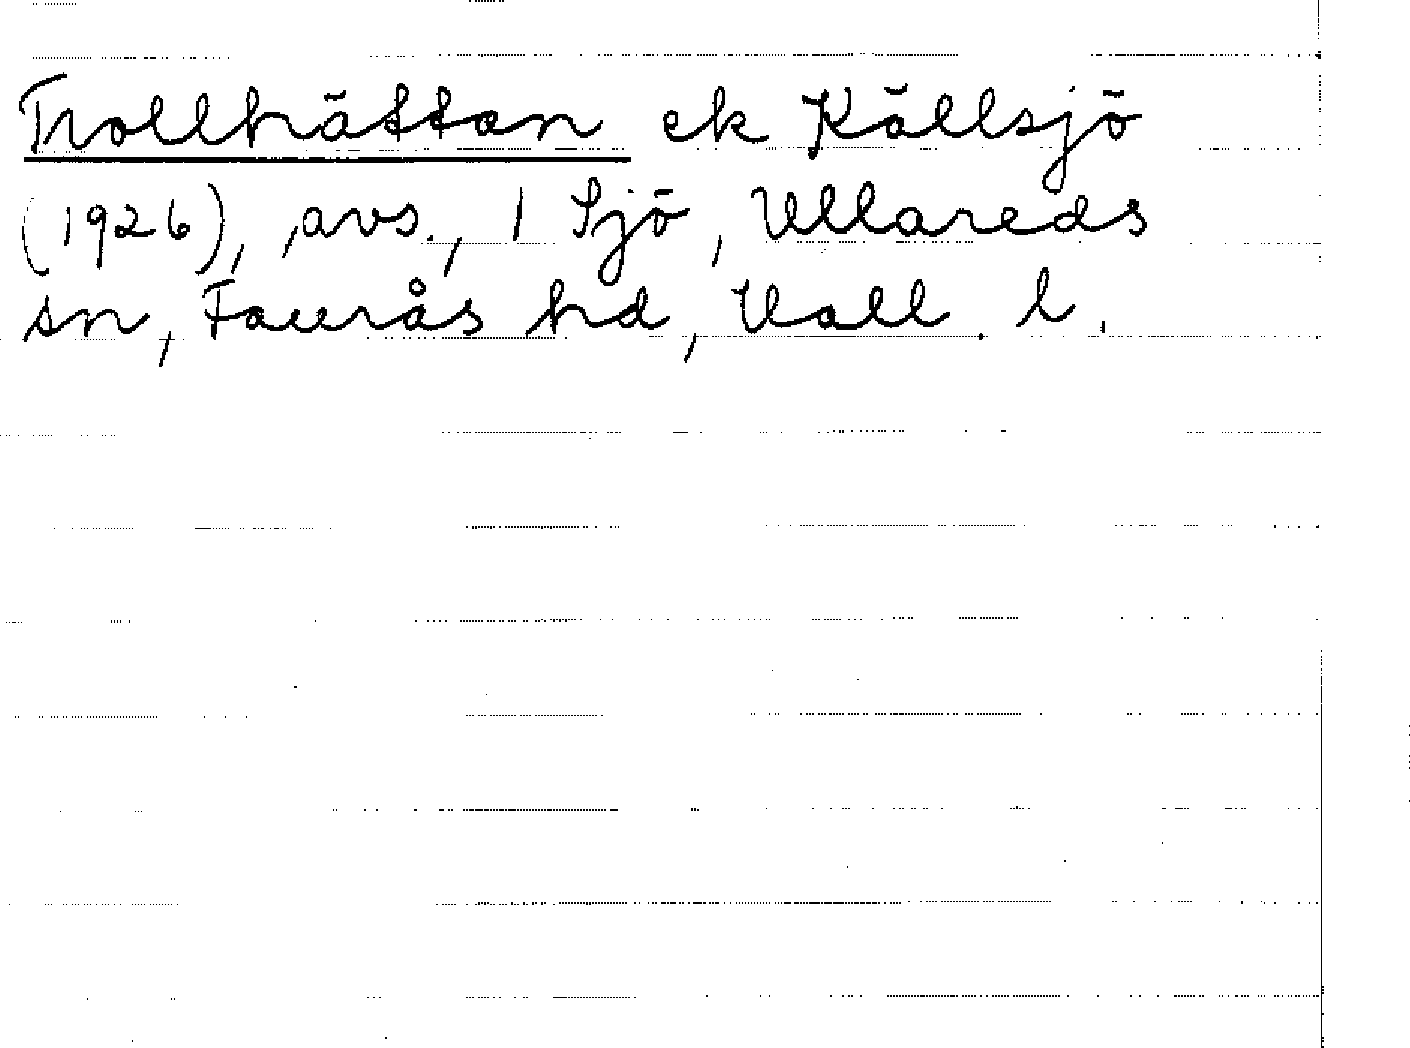 Trollhättan ek Källsjö
(1926), avs., 1 Sjö, Ullareds
sn, Faurås hd, Hall. l.